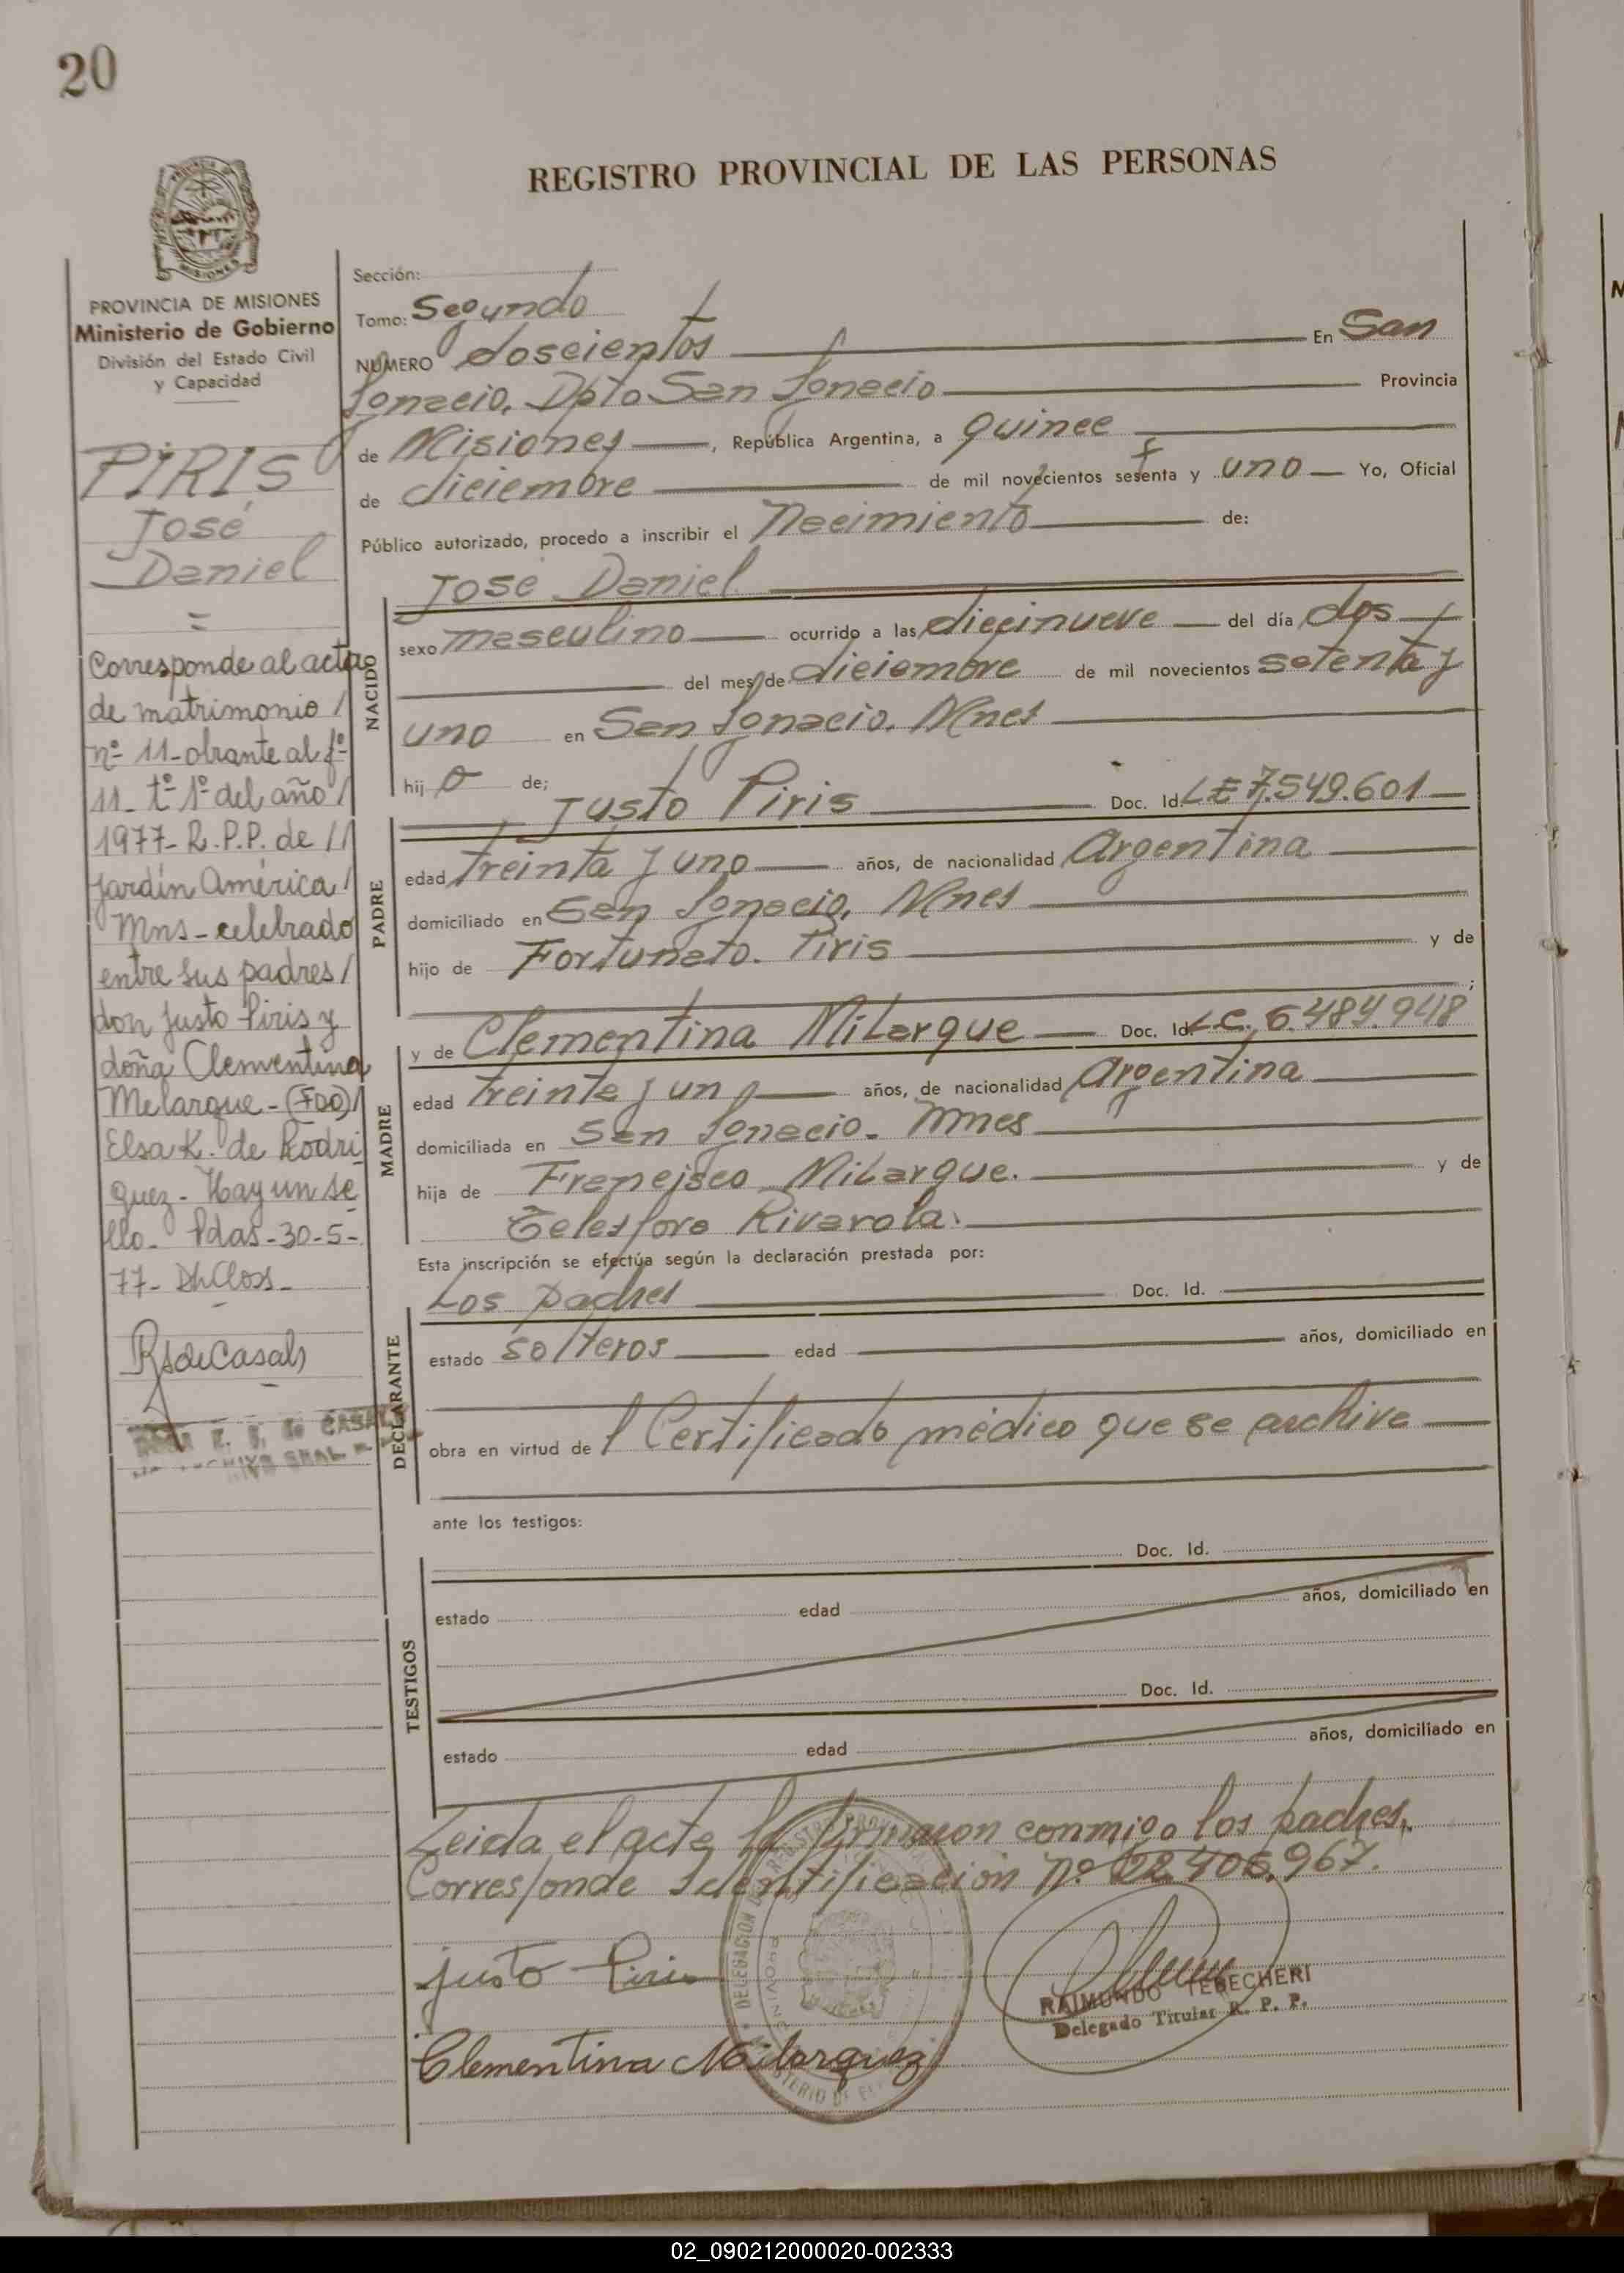 20
REGISTRO PROVINCIAL DE LAS PERSONAS
MISIONES
PROVINCIA DE MISIONES
Ministerio de Gobierno
División del Estado Civil
y Capacidad
PIRIS
José
Daniel
=
Corresponde al acta
de matrimonio /
nº 11 - obrante al fº
11 - tº 1º del año /
1977 - R.P.P. de //
Jardín América /
Mns - celebrado
entre sus padres /
don Justo Piris y
doña Clementina
Melarque - (FDO) /
Elsa K. de Rodri
guez - Hay un se
llo - Pdas - 30-5-
77 - DhCloss -
RsdeCasals
Sección:
Tomo: Segundo
NUMERO doscientos En San
Ignacio, Dpto San Ignacio Provincia
de Misiones, República Argentina, a quince
de diciembre de mil novecientos sesenta y uno Yo, Oficial
Público autorizado, procedo a inscribir el Nacimiento de:
José Daniel
NACIDO
sexo masculino ocurrido a las diecinueve del día dos
del mes de diciembre de mil novecientos setenta y
uno en San Ignacio, Mnes
hijo de;
Justo Piris Doc. Id. LE 7.549.601
PADRE
edad treinta y uno años, de nacionalidad Argentina
domiciliado en San Ignacio, Mnes
hijo de Fortunato. Piris y de
;
MADRE
y de Clementina Milarque Doc. Id. L.C. 6.484.948
edad treinta y uno años, de nacionalidad Argentina
domiciliada en San Ignacio - Mnes
hija de Francisco Milarque. y de
Telesfora Rivarola.
Esta inscripción se efectúa según la declaración prestada por:
Los padres Doc. Id.
DECLARANTE
estado solteros edad años, domiciliado en
obra en virtud de l Certificado médico que se archiva
ante los testigos:
TESTIGOS
Doc. Id.
estado edad años, domiciliado en
Doc. Id.
estado edad años, domiciliado en
Leida el acta la firmaron conmigo los padres,
Corresponde Identificación nº 22.406.967.
Justo Piris
RAIMUNDO TEBECHERI
Delegado Titular R. P. P.
Clementina Milarquez
02_090212000020-002333